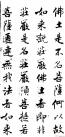 佛土是不名菩薩何以故
如來說莊嚴佛土者即非
莊嚴是名莊嚴須菩提若
菩薩通達無我法者如來